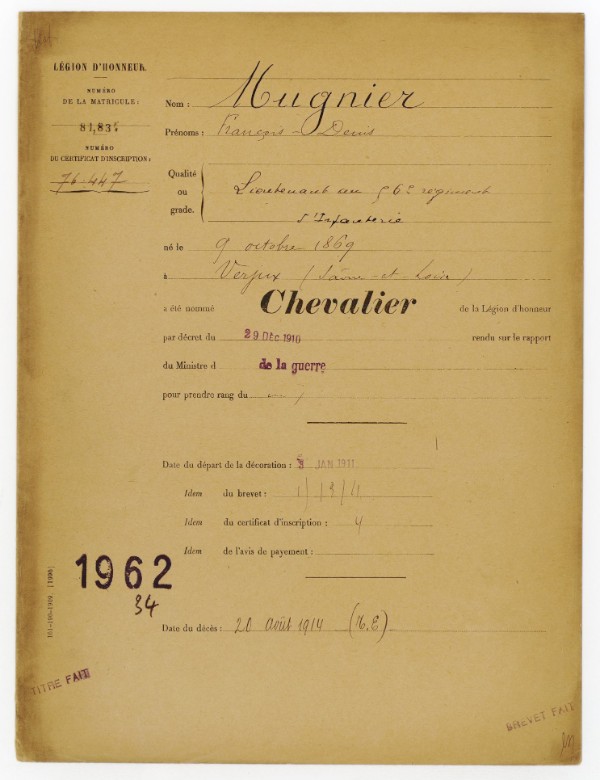 LÉGION D'HONNEUR.
NUMÉRO
DE LA MATRICULE :
NUMÉRO
DU CERTIFICAT D'INSCRIPTION :
76.447
Nom : Mugnier
Prénoms : François - Denis
Qualité
ou
grade.
Lieutenant au 56e régiment
d'Infanterie
né le 9 octobre 1869
à Verjux (Saône-et-Loire)
a été nommé Chevalier de la Légion d'honneur
par décret du 29 DÉC 1910 rendu sur le rapport
du Ministre d de la guerre
pour prendre rang du
Date du départ de la décoration : JAN 1911
Idem du brevet :
Idem du certificat d'inscription :
Idem de l'avis de payement :
1962
34
Date du décès : 20 Août 1914
TITRE FAIT
BREVET FAIT